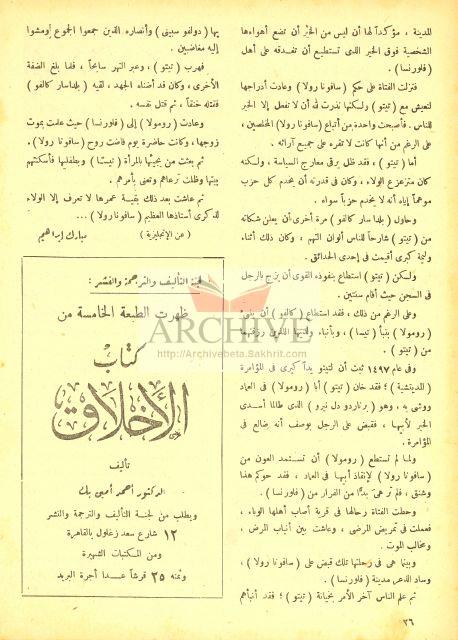 للمدينة ، مؤكداً لها أن ليس من الخير أن تضع أهواءها
الشخصية فوق الخير الذى تستطيع أن تغدقه على أهل
( فلورنسا ) .
فنزلت الفتاة على حكم ( سافونا رولا ) وعادت أدراجها
لتعيش مع ( تيتو ) ولكنها نذرت لله أن لا تفعل إلا الخير
للناس . فأصبحت واحدة من أتباع ( سافونا رولا ) المخلصين ،
على الرغم من أنها كانت لا تقره على جميع آرائه .
أما ( تيتو ) ، فقد ظل يرقى معارج السياسة ، ولكنه
كان متزعزع الولاء ، وكان فى قدرته أن يخدم كل حزب
موهماً إياه أنه لا يخدم حزباً سواه .
وحاول ( بلداسار كالفو ) مرة أخرى أن يعلن شكاته
من ( تيتو ) شارحاً للناس ألوان التهم ، وكان ذلك أثناء
وليمة كبرى أقيمت فى إحدى الحدائق .
ولكن ( تيتو ) استطاع بنفوذه القوى أن يزج بالرجل
فى السجن حيث أقام سنتين .
وعلى الرغم من ذلك ، فقد استطاع ( كالفو ) أن ينبئ
( رومولا ) بنبأ ( تيسا ) ، وبأنباء ولديها اللذين رزقتهما
من ( تيتو ) .
وفى عام ١٤٩٧ ثبت أن لتيتو يداً كبرى فى المؤامرة
( المديتشية ) ؛ فقد خان ( تيتو ) أبا ( رومولا ) فى العماد
ووشى به ، وهو ( برناردو دل نيرو ) الذى طالما أسدى
الخير لأبيها ، فقبض على الرجل بوصف أنه ضالع فى
المؤامرة .
ولما لم تستطع ( رومولا ) أن تستمد العون من
( سافونا رولا ) لإنقاذ أبيها فى العماد ، فقد حوكم هذا
وشنق ، فلم تر هى بداً من الفرار من ( فلورنسا ) .
وحطت الفتاة رحالها فى قرية أصاب أهلها الوباء ،
فعملت فى تمريض المرضى ، وعاشت بين أنياب المرض ،
ومخالب الموت .
وبينما هى فى رحلتها تلك قبض على ( سافونا رولا ) ،
وساد الذعر مدينة ( فلورنسا ) .
ثم علم الناس آخر الأمر بخيانة ( تيتو ) ؛ فقد أنبأهم
بها ( دولفو سبينى ) وأنصاره الذين جمعوا الجموع أومشوا
إليه مغاضبين .
فهرب ( تيتو ) ، وعبر النهر سابحاً ، فلما بلغ الضفة
الأخرى ، وكان قد أضناه الجهد ، لقيه ( بلداسار كالفو )
فقتله خنقاً ، ثم قتل نفسه .
وعادت ( رومولا ) إلى ( فلورنسا ) حيث علمت بموت
زوجها ، وكانت حاضرة يوم فاضت روح ( سافونا رولا ) .
ثم بعثت من يجيئها بالمرأة ( تيسا ) وبطفليها فأسكنتهم
بيتها وظلت ترعاهم وتعنى بأمرهم .
ثم عاشت بعد ذلك بقية عمرها لا تعرف إلا الولاء
لذكرى أستاذها العظيم ( سافونا رولا ) ...
( عن الإنجليزية )
مبارك إبراهيم
لجنة التأليف والترجمة والنشر :
ظهرت الطبعة الخامسة من
كتاب
الأخلاق
تأليف
الدكتور أحمد أمين بك
ويطلب من لجنة التأليف والترجمة والنشر
١٢ شارع سعد زغلول بالقاهرة
ومن المكتبات الشهيرة
وثمنه ٢٥ قرشاً عدا أجرة البريد
ARCHIVE
http://Archivebeta.Sakhrit.com
٢٦